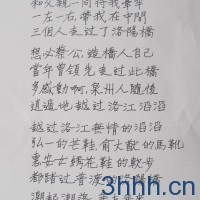 和父親一同將我牽牢
一左一右,帶我在中間
三個人走過了洛陽橋
想必蔡公,造橋人自己
當年曾領先走過此橋
多感動啊,泉州人隨後
逍遙地越過洛江滔滔
越過洛江無情的滔滔
弘一的芒鞋,俞大猷的馬靴
惠安女繡花鞋的軟步
都踏過普渡的洛陽橋
3hhh.cn